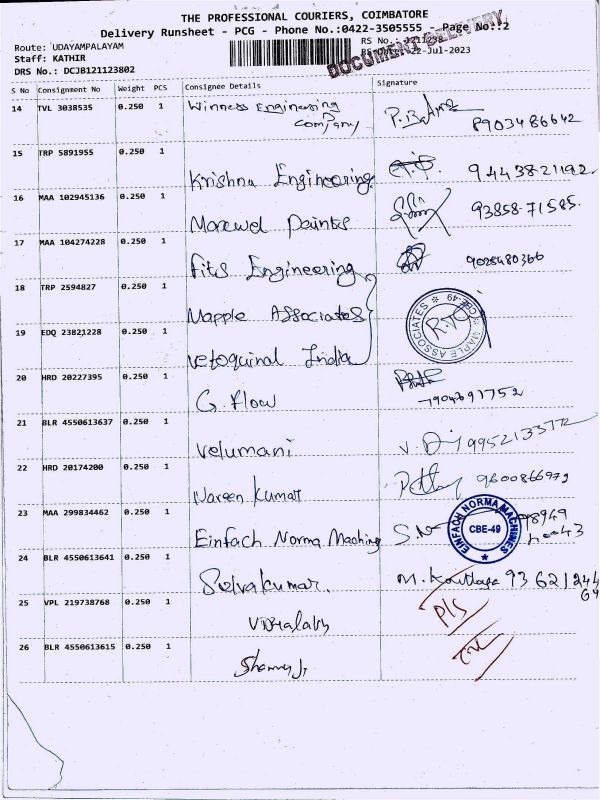 THE PROFESSIONAL COURIERS, COIMBATORE
Delivery Runsheet - PCG - Phone No.:0422-3505555 - Page No.:2
Route: UDAYAMPALAYAM
RS No.: 1211298
Staff: KATHIR
22-Jul-2023
DOCUMENT DELIVERY
DRS No.: DCJB121123802
S No Consignment No Weight PCS Consignee Details Signature
14 TVL 3038535 0.250 1 Winness Engineering
Company 8903486642
15 TRP 5891955 0.250 1
Krishna Engineering 9443821192
16 MAA 102945136 0.250 1
Marewel Paints 93858-71585
17 MAA 104274228 0.250 1
Fits Engineering 9028480366
18 TRP 2594827 0.250 1
Mapple Associates
MAPLE ASSOCIATES CBE-49
19 EDQ 23821228 0.250 1
Vetoquinal India
20 HRD 20227395 0.250 1
G. Flow 7904691752
21 BLR 4550613637 0.250 1
Velumani 9952133772
22 HRD 20174200 0.250 1
Nareen Kumar 9600866979
23 MAA 299834462 0.250 1
Einfach Norma Maching
EINFACH NORMA MACHINES
CBE-49
24 BLR 4550613641 0.250 1
Selvakumar. M.
25 VPL 219738768 0.250 1
26 BLR 4550613615 0.250 1